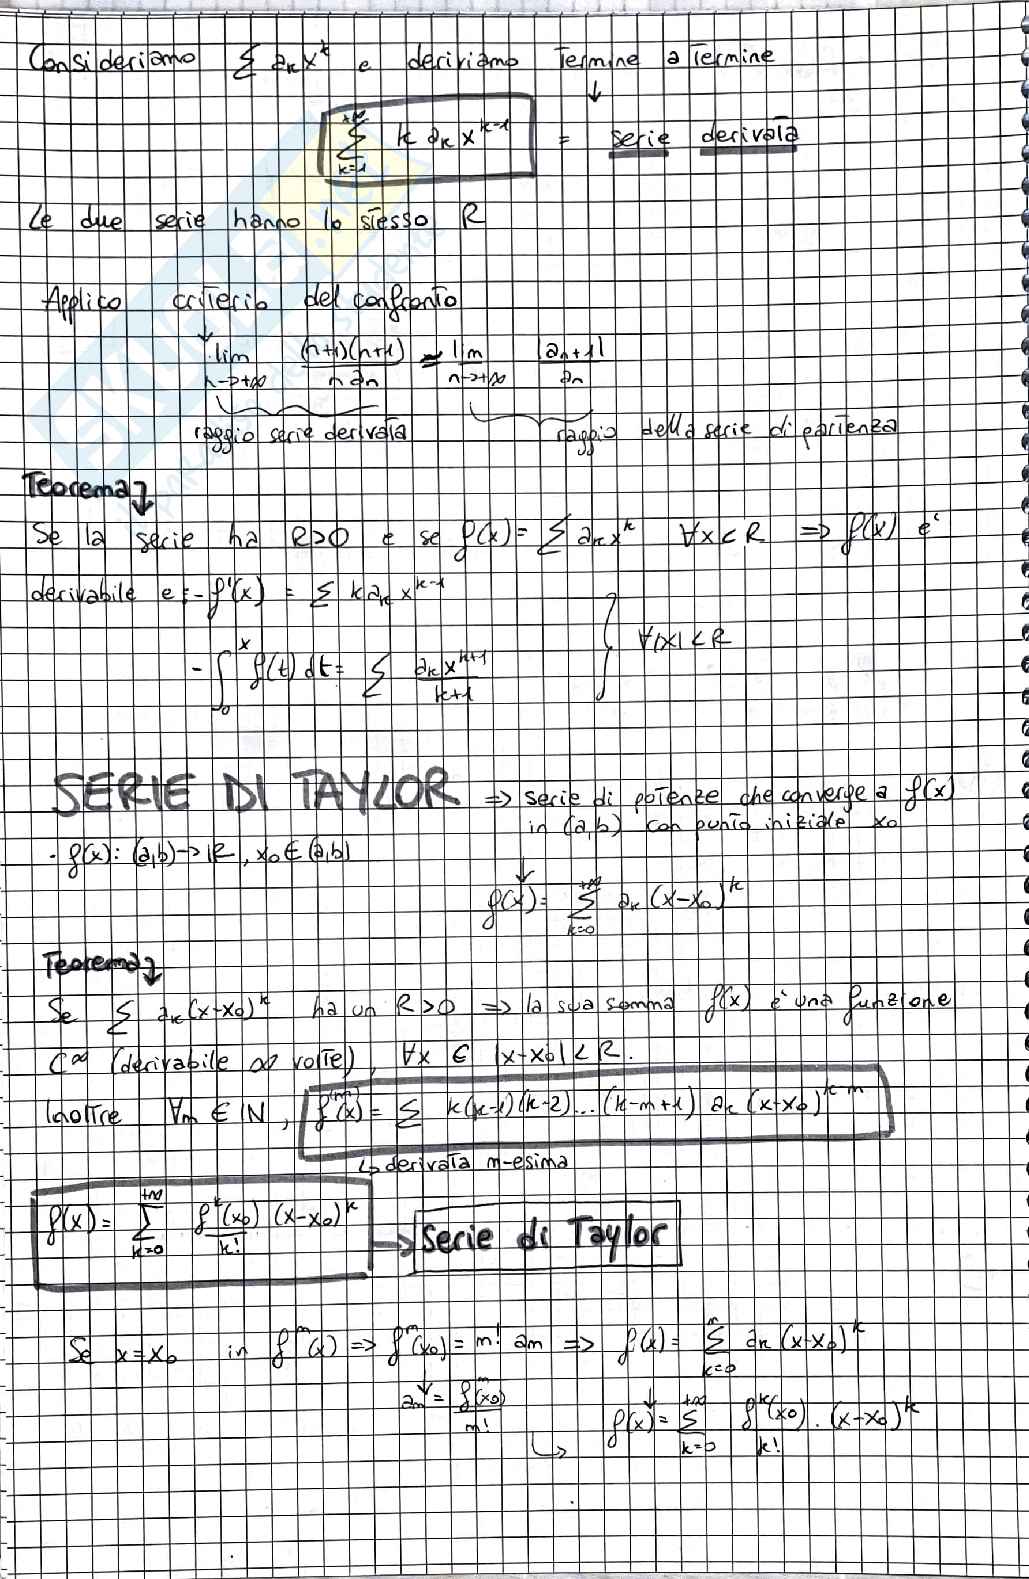 Consideriamo Σ aₖxᵏ e deriviamo termine a termine
↓
+∞ Σ k=1 k aₖ xᵏ⁻¹ = serie derivata
Le due serie hanno lo stesso R
Applico criterio del confronto
lim n->+∞ (n+1)(n+1) / n an = lim n->+∞ |an+1| / an
raggio serie derivata raggio della serie di partenza
Teorema
Se la serie ha R>0 e se f(x) = Σ aₖxᵏ ∀x<R => f(x) è
derivabile e: - f'(x) = Σ k aₖ xᵏ⁻¹
∀|x|<R
- ∫₀ˣ f(t) dt = Σ aₖxᵏ⁺¹ / k+1
SERIE DI TAYLOR => serie di potenze che converge a f(x)
in (a,b) con punto iniziale x₀
· f(x): (a,b) -> ℝ, x₀ ∈ (a,b)
↓
f(x) = +∞ Σ k=0 aₖ (x-x₀)ᵏ
Teorema
Se Σ aₖ(x-x₀)ᵏ ha un R>0 => la sua somma f(x) è una funzione
C∞ (derivabile ∞ volte), ∀x ∈ |x-x₀| < R.
Inoltre ∀m ∈ ℕ, f⁽ᵐ⁾(x) = Σ k(k-1)(k-2)...(k-m+1) aₖ (x-x₀)ᵏ⁻ᵐ
↳ derivata m-esima
f(x) = +∞ Σ k=0 fᵏ(x₀) / k! (x-x₀)ᵏ → Serie di Taylor
Se x=x₀ in fᵐ(x) => fᵐ(x₀) = m! am => f(x) = n Σ k=0 aₖ (x-x₀)ᵏ
am = fᵐ(x₀) / m!
↳ f(x) = +∞ Σ k=0 fᵏ(x₀) / k! · (x-x₀)ᵏ